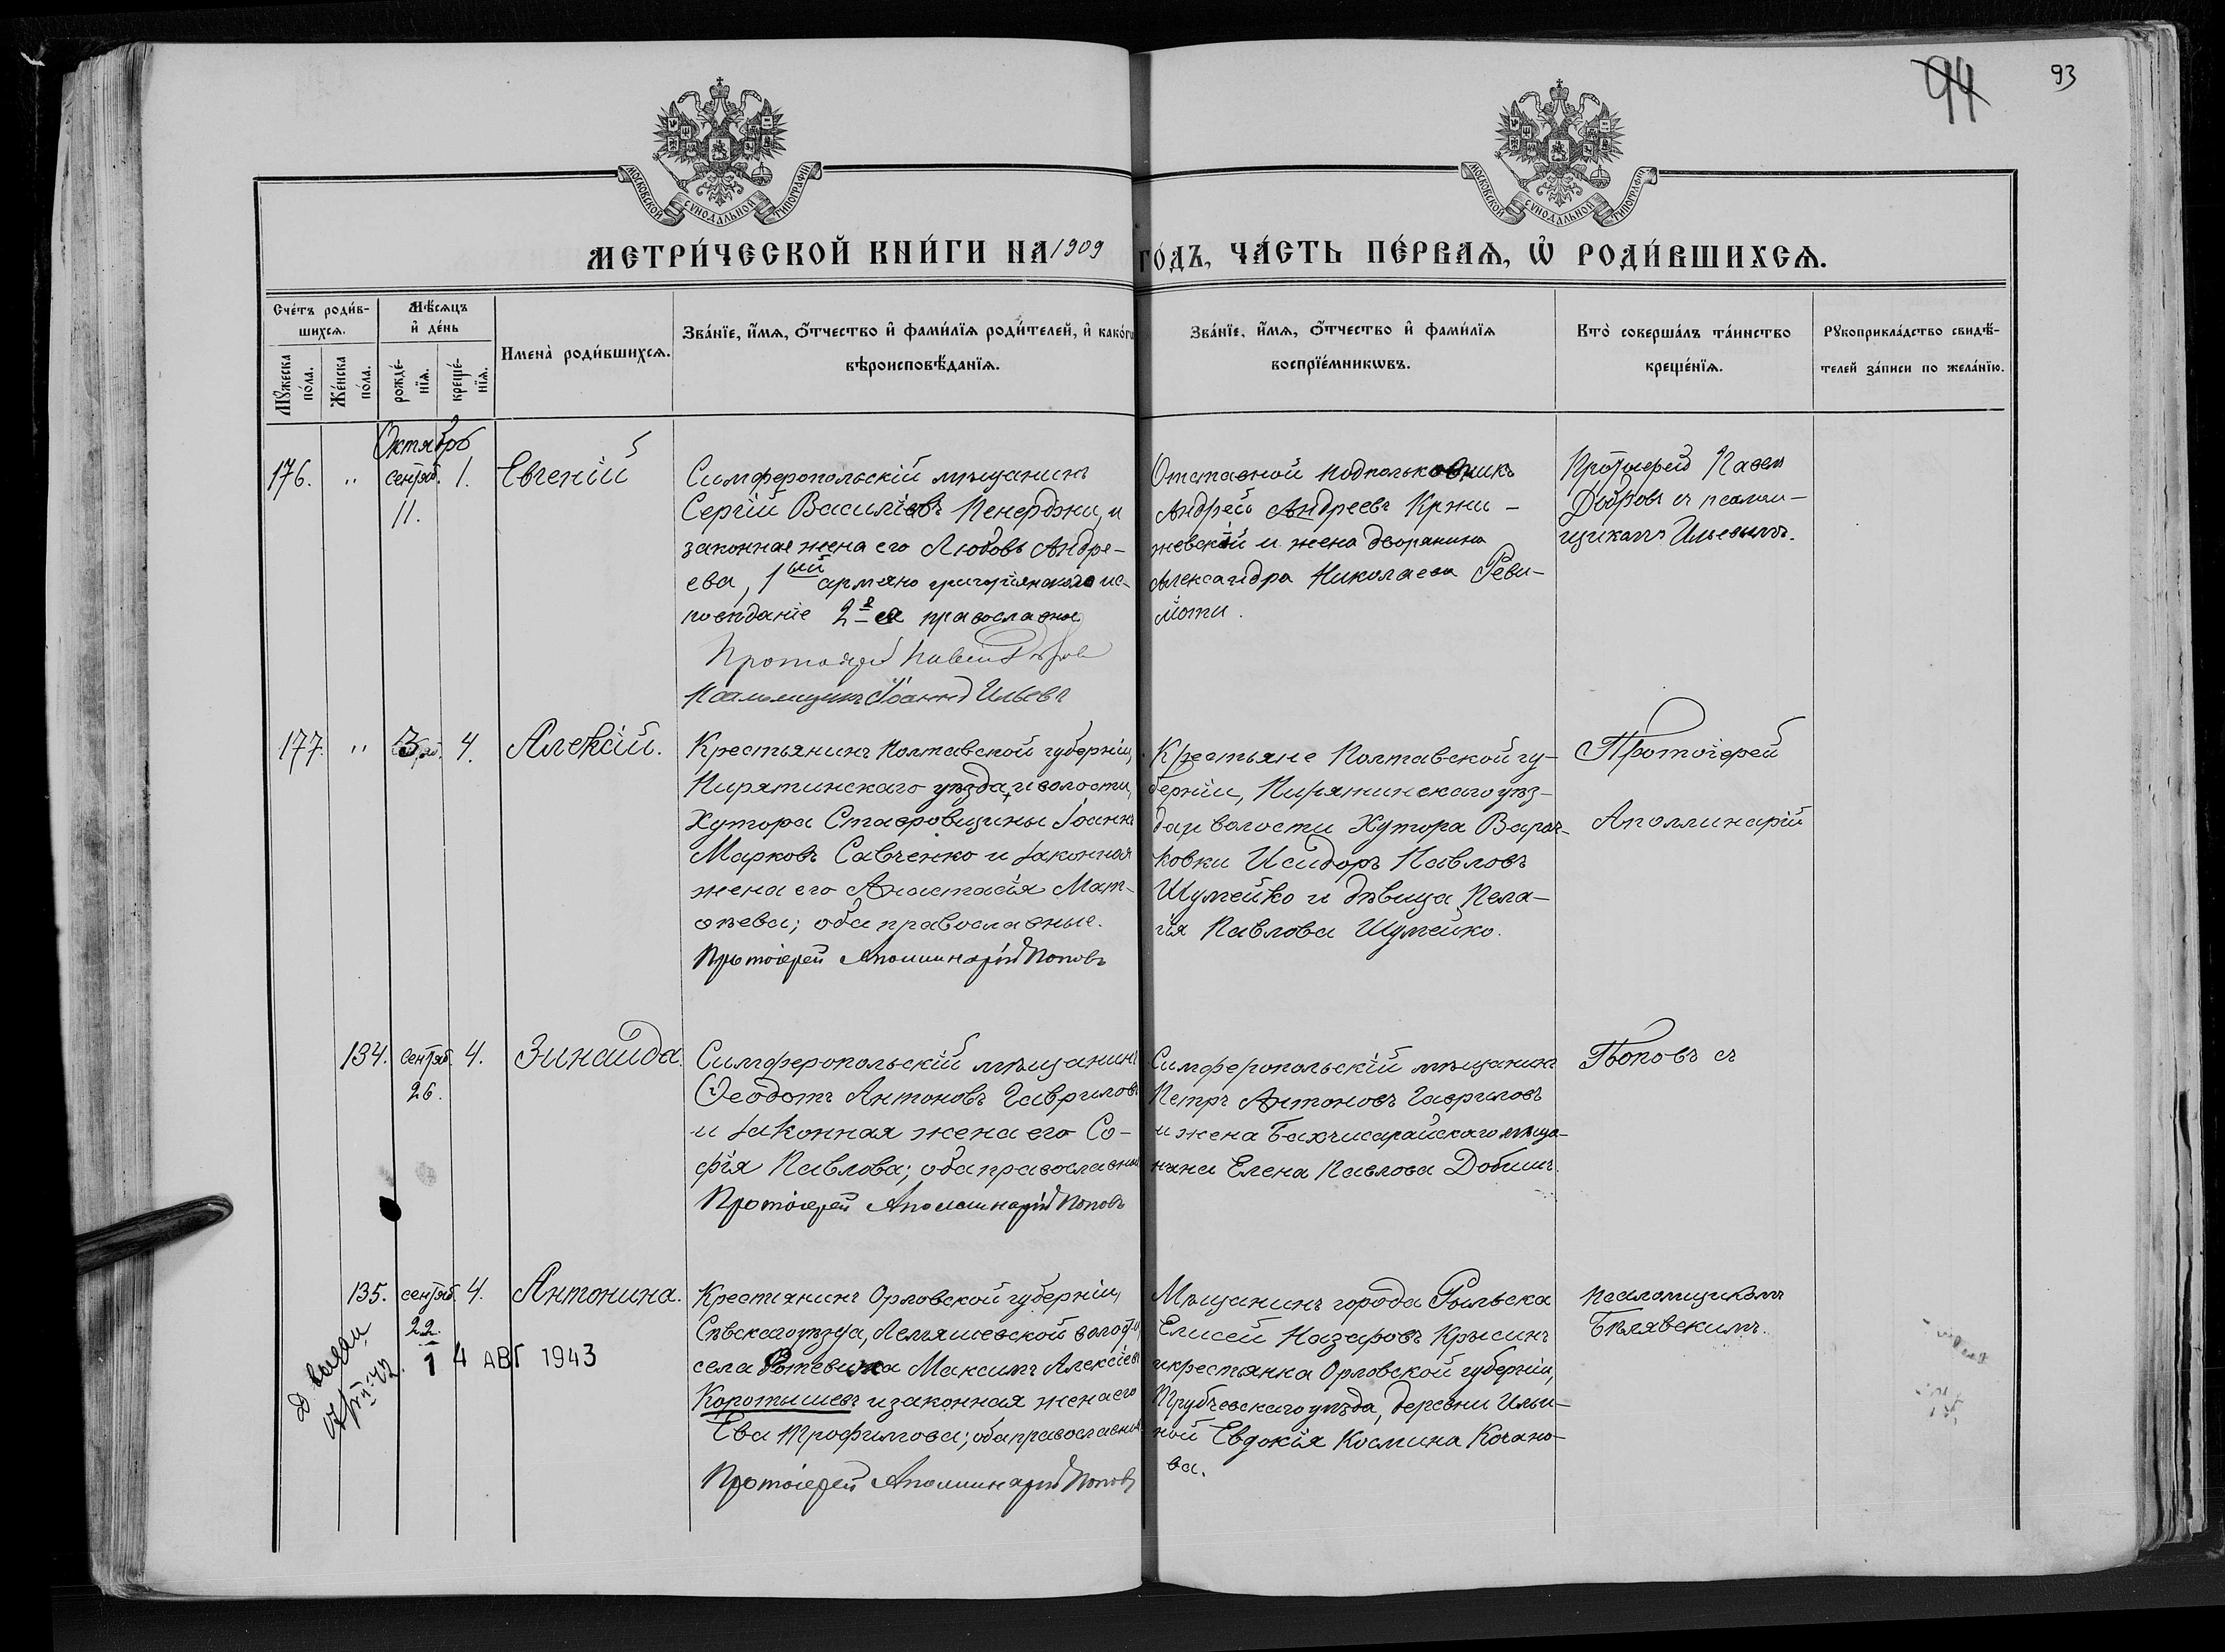 94
93
МОСКОВСКОЙ СѴНОДАЛЬНОЙ ТИПОГРАФІИ
МОСКОВСКОЙ СѴНОДАЛЬНОЙ ТИПОГРАФІИ
МЕТРИ́ЧЕСКОЙ КНИ́ГИ НА 1909 ГО́ДЪ, ЧА́СТЬ ПЕ́РВАѦ, Ѡ҆ РОДИ́ВШИХСѦ.
Сче́тъ роди́в-
шихсѧ.
Мꙋ́жеска по́ла.
Же́нска по́ла.
Мѣ́сѧцъ
и҆ де́нь
рожде́-
нїѧ.
креще́-
нїѧ.
Имена̀ роди́вшихсѧ.
Зва́нїе, и҆́мѧ, ѻ҆́тчество и҆ фами́лїѧ роди́телей, и҆ како́гѡ
вѣроисповѣ́данїѧ.
Зва́нїе, и҆́мѧ, ѻ҆́тчество и҆ фами́лїѧ
воспрїе́мникѡвъ.
Кто̀ соверша́лъ та́инство
креще́нїѧ.
Рꙋкоприкла́дство свидѣ́-
телей за́писи по жела́нїю.
Октябрь
176. " сентяб. 1. Евгеній
11.
Симферопольскій мѣщанинъ
Сергій Василіевъ Пенерджи, и
законная жена его Любовь Андре-
ева, 1ый армяно григоріянскаго ис-
повѣданіе 2-я православное
Протоіерей Павелъ Добровъ
Псаломщикъ Іоаннъ Ильевъ
Отставной подполковникъ
Андрей Андреевъ Кржи-
жевскій и жена дворянина
Александра Николаева Реви-
лоти.
Протоіерей Павелъ
Добровъ съ псалом-
щикомъ Ильевымъ.
177. " 3 4. Алексій.
Крестьянинъ Полтавской губерніи,
Пирятинскаго уѣзда, и волости,
Хутора Ставровщины Іоаннъ
Марковъ Савченко и законная
жена его Анастасія Мат-
ѳѣева; оба православные.
Протоіерей Аполлинарій Поповъ
Крестьяне Полтавской гу-
берніи, Пирятинскаго уѣз-
да и волости Хутора
Исидоръ Павловъ
Шумейко и дѣвица Пела-
гія Павлова Шумейко.
Протоіерей
Аполлинарій
134. сентяб. 4. Зинаида.
26.
Симферопольскій мѣщанинъ
Ѳеодотъ Антоновъ Гавриловъ
и законная жена его Со-
фія Павлова; оба православные
Протоіерей Аполлинарій Поповъ
Симферопольскій мѣщанинъ
Петръ Антоновъ Гавриловъ
и жена Бахчисарайскаго мѣща-
нина Елена Павлова Добишъ.
Поповъ съ
135. сентяб. 4. Антонина.
22.
14 АВГ 1943
Крестянинъ Орловской губерніи,
Сѣвскаго уѣзда, волости,
села Максимъ Алексіевъ
Коротышевъ и законная жена его
Ева Трофимова; оба православные
Протоіерей Аполлинарій Поповъ
Мѣщанинъ города Рыльска
Елисей Назаровъ Крысинъ
и крестянка Орловской губерніи,
Трубчевскаго уѣзда, деревни Ильи-
ной Евдокія Космина Кочано-
ва.
псаломщикомъ
Бѣлявскимъ.